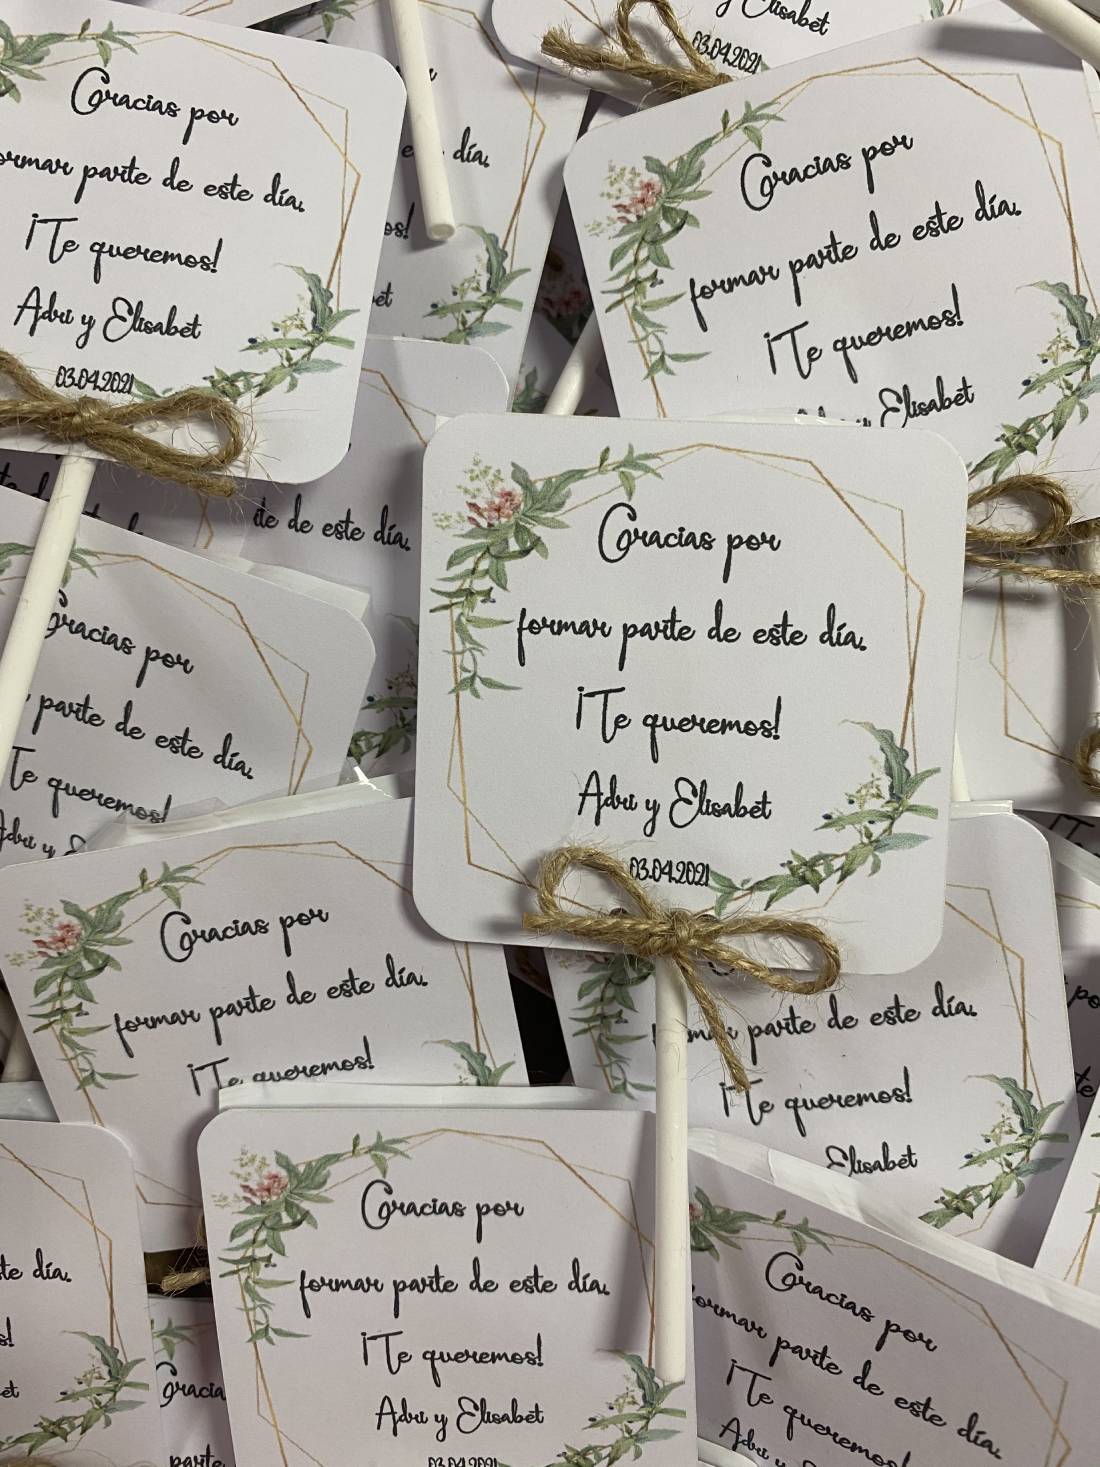 y Elisabet
03.04.2021
Gracias por
parte de este día.
¡Te queremos!
Adri y Elisabet
03.04.2021
día.
Gracias por
formar parte de este día.
¡Te queremos!
Elisabet
de este día.
Gracias por
parte de este día.
Te queremos!
Gracias por
formar parte de este día.
¡Te queremos!
Adri y Elisabet
03.04.2021
Gracias por
formar parte de este día.
¡Te queremos!
parte de este día.
¡Te queremos!
Elisabet
Gracias por
formar parte de este día.
¡Te queremos!
Adri y Elisabet
03.04.2021
día.
parte
Gracias por
parte de este día.
¡Te queremos!
Adri y